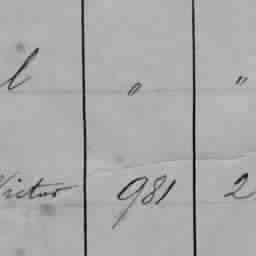 l " "
Victor 981 2